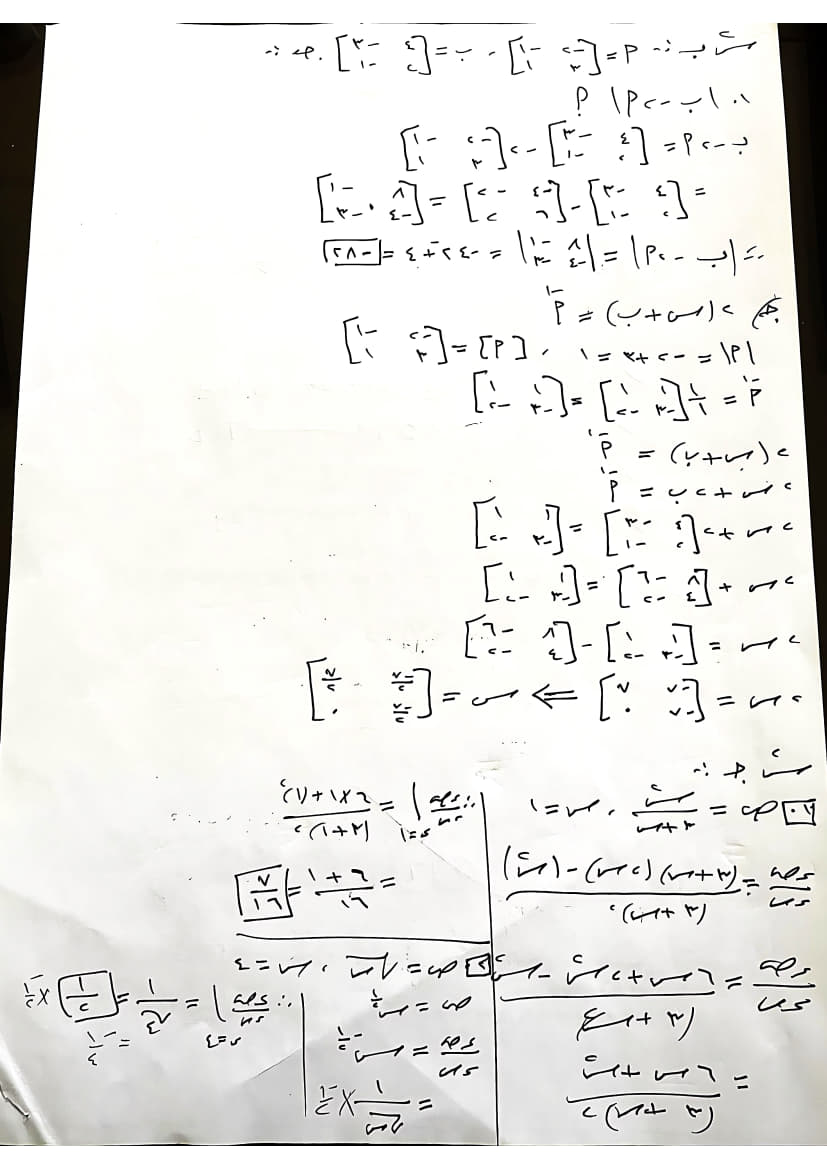 س ب :- أ = [-٢ -١ ; ٣ ١] ، ب = [٤ -٣ ; ٢ -١] جد :-
١. |ب - ٢أ| ؟
ب - ٢أ = [٤ -٣ ; ٢ -١] - ٢ [-٢ -١ ; ٣ ١]
= [٤ -٣ ; ٢ -١] - [-٤ -٢ ; ٦ ٢] = [٨ -١ ; -٤ -٣]
∴ |ب - ٢أ| = |٨ -١ ; -٤ -٣| = -٢٤ + ٤ = [-٢٨]
٢(س + ب) = أ⁻¹
|أ| = -٢ + ٣ = ١ ، [أ] = [-٢ -١ ; ٣ ١]
أ⁻¹ = ١/١ [١ ١ ; -٣ -٢] = [١ ١ ; -٣ -٢]
٢(س + ب) = أ⁻¹
٢س + ٢ب = أ⁻¹
٢س + ٢ [٤ -٣ ; ٢ -١] = [١ ١ ; -٣ -٢]
٢س + [٨ -٦ ; ٤ -٢] = [١ ١ ; -٣ -٢]
٢س = [١ ١ ; -٣ -٢] - [٨ -٦ ; ٤ -٢]
٢س = [-٧ ٧ ; -٧ ٠] ⇐ س = [-٧/٢ ٧/٢ ; -٧/٢ ٠]
س جـ :-
[١.] ص = س²/(٣ + س) ، س = ١
ءص/ءس = ((٣ + س)(٢س) - (س²))/(٣ + س)²
ءص/ءس = (٦س + ٢س² - س²)/(٣ + س)²
= (٦س + س²)/(٣ + س)²
∴ ءص/ءس |س=١ = (٦×١ + (١)²)/(٣+١)²
= (٦ + ١)/١٦ = [٧/١٦]
[٢] ص = √س ، س = ٤
ص = س^(١/٢)
ءص/ءس = س^(-١/٢)
= ١/√س × ١/٢
∴ ءص/ءس |س=٤ = ١/√٤ = [١/٢] × ١/٢
= ١/٤